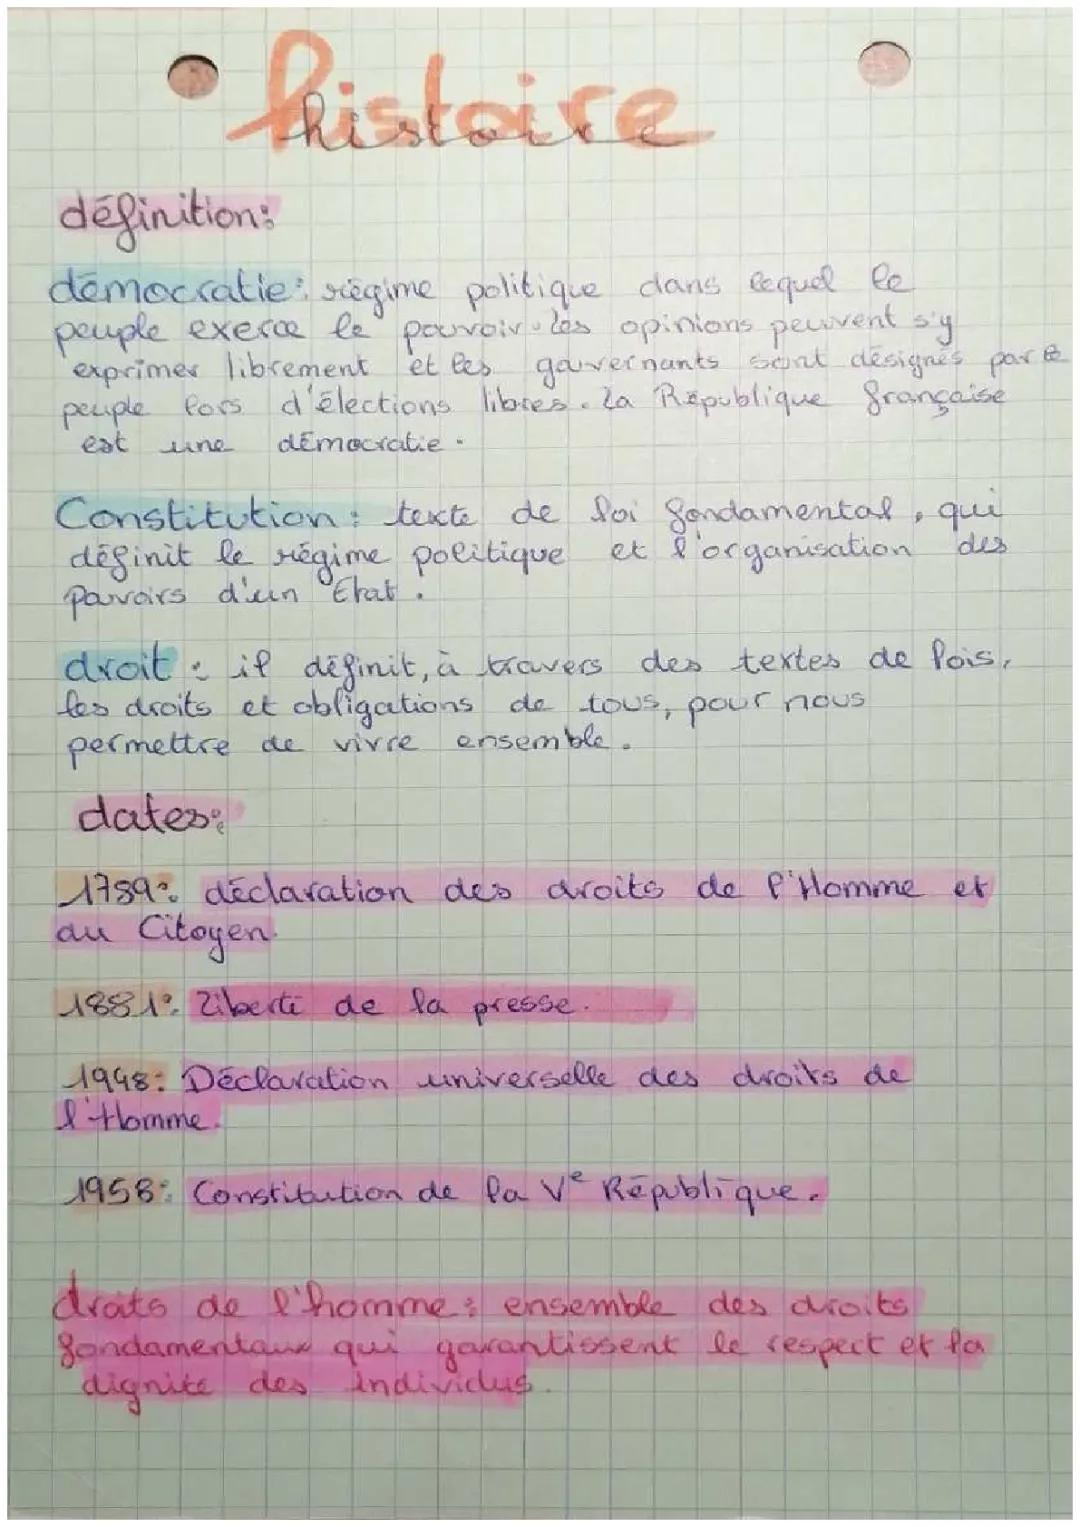 histoire
définition:
démocratie: régime politique dans lequel le
peuple exerce le pouvoir. les opinions peuvent s'y
exprimer librement et les gouvernants sont désignés par le
peuple lors d'élections libres. La République française
est une démocratie.
Constitution: texte de loi fondamental, qui
définit le régime politique et l'organisation des
pouvoirs d'un Etat.
droit: il définit, à travers des textes de lois,
les droits et obligations de tous, pour nous
permettre de vivre ensemble.
dates:
1789: déclaration des droits de l'Homme et
du Citoyen.
1881: Liberté de la presse.
1948: Déclaration universelle des droits de
l'Homme.
1958: Constitution de la Ve République.
droits de l'homme: ensemble des droits
fondamentaux qui garantissent le respect et la
dignite des individus.